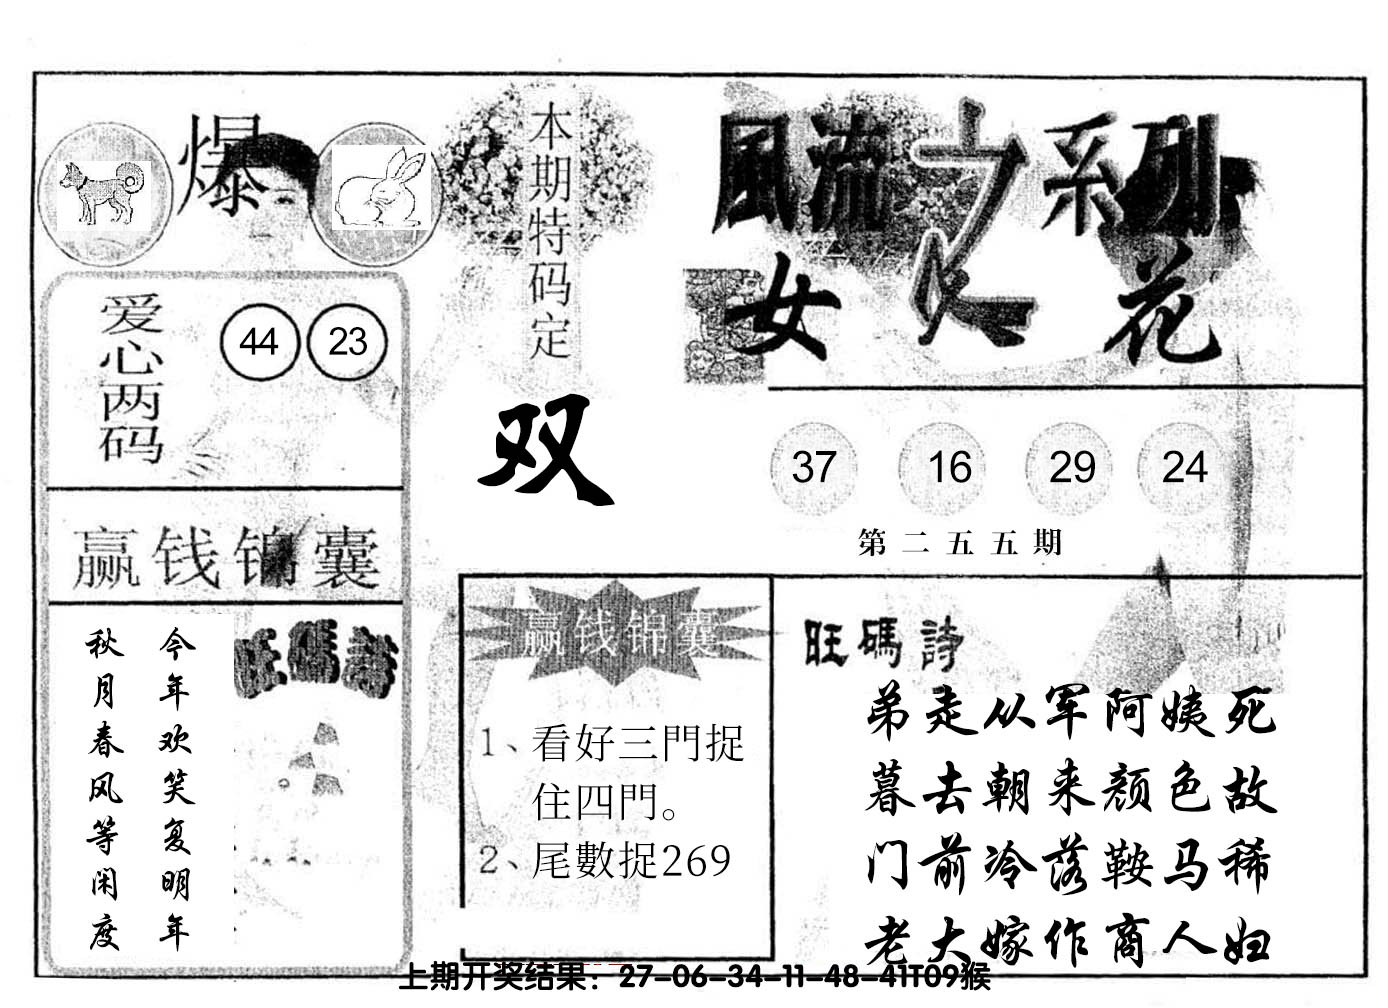 爆
爱心两码
44 23
赢钱锦囊
今年欢笑复明年
秋月春风等闲度
旺碼詩
本期特码定
双
風流之系列
女人花
37 16 29 24
第二五五期
赢钱锦囊
1、看好三門捉
住四門。
2、尾數捉269
旺碼詩
弟走从军阿姨死
暮去朝来颜色故
门前冷落鞍马稀
老大嫁作商人妇
上期开奖结果：27-06-34-11-48-41T09猴